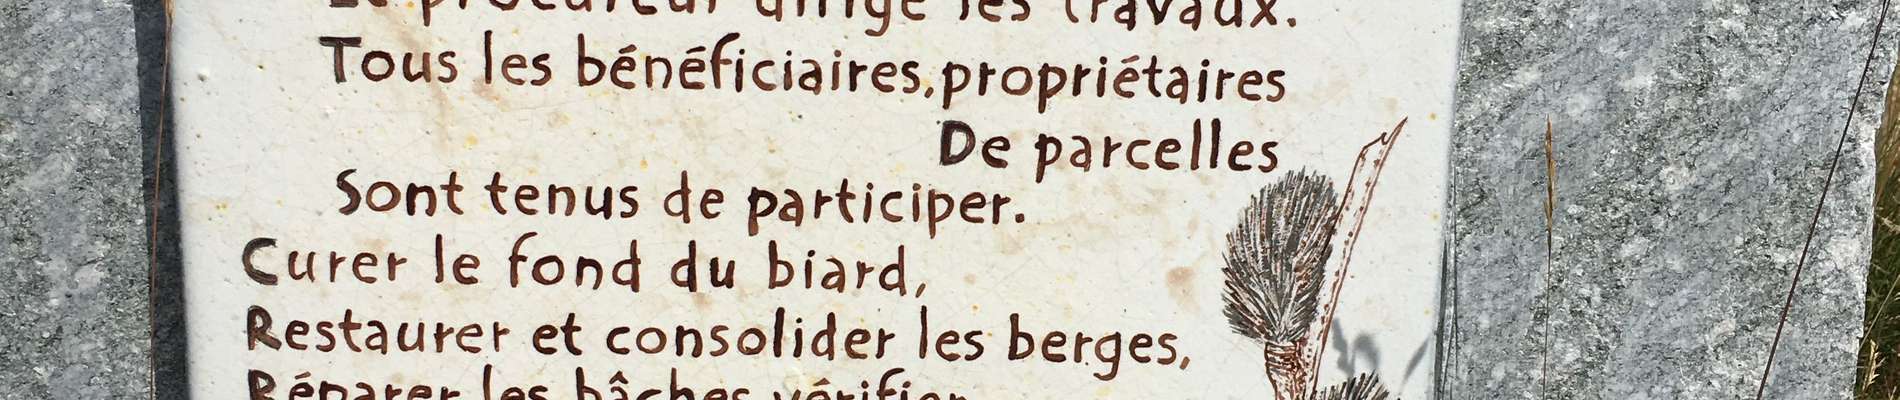 Le procureur dirige les travaux.
Tous les bénéficiaires, propriétaires
De parcelles
Sont tenus de participer.
Curer le fond du biard,
Restaurer et consolider les berges,
Réparer les bâches, vérifier